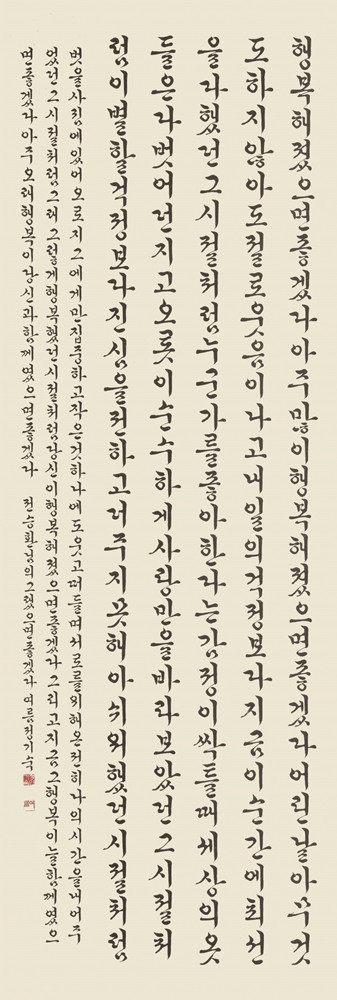 행복해졌으면좋겠다아주많이행복해졌으면좋겠다어린날아무것
도하지않아도절로웃음이나고내일의걱정보다지금이순간에최선
을다했던그시절처럼누군가를좋아한다는감정이싹틀때세상의옷
들은다벗어던지고오롯이순수하게사랑만을바라보았던그시절처
럼이별할걱정보다진심을전하고더주지못해아쉬워했던시절처럼
벗을사귐에있어오로지그에게만집중하고작은것하나에도웃고떠들며서로를위해온전히나의시간을내어주
었던그시절처럼그래그렇게행복했던시절처럼당신이행복해졌으면좋겠다그리고지금그행복이늘함께였으
면좋겠다아주오래행복이당신과함께였으면좋겠다 전승환님의그랬으면좋겠다여름정기숙